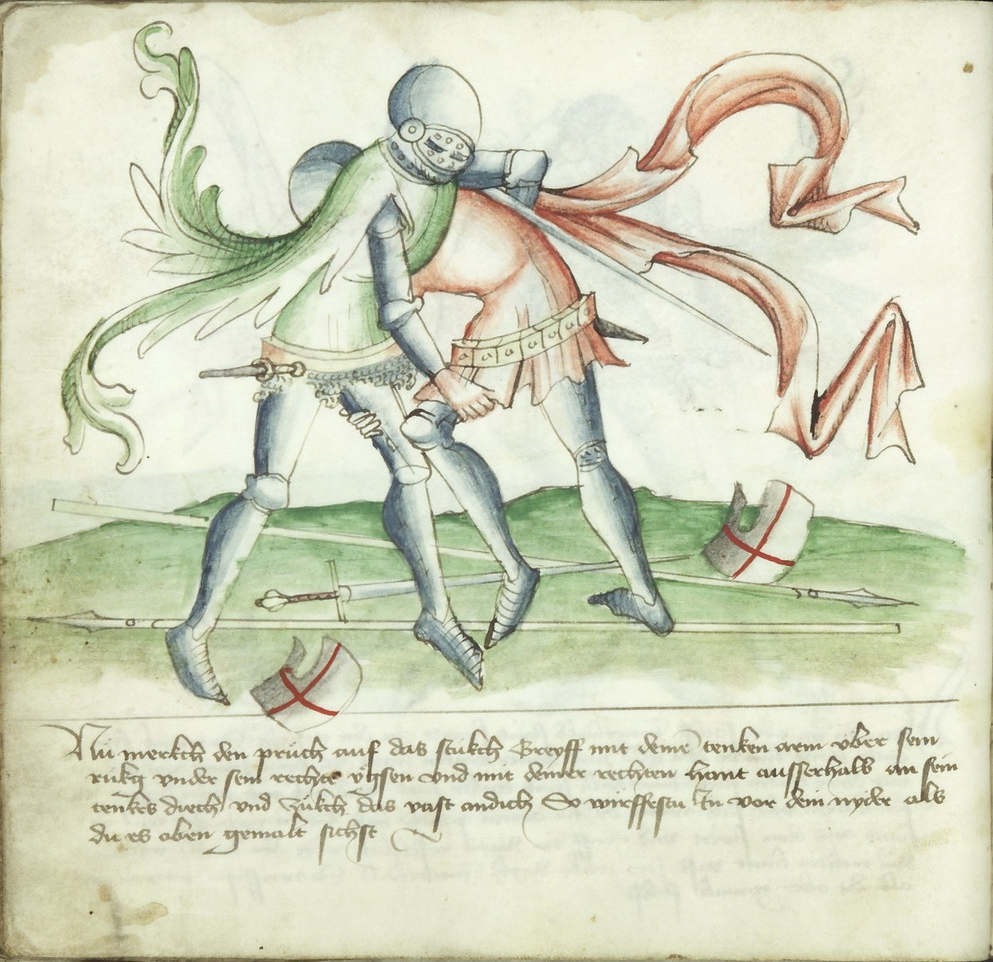 Nu merkch den pruch auf das stukch Greyff mit deinē tenken arm vber sein
rukg vnder sein rechte vgsen vnd mit deiner rechten hant ausserhalb an sein
tenkes diech vnd zukch das vast an dich So wirffestu In vor dein nyder als
du es oben gemalt sichst